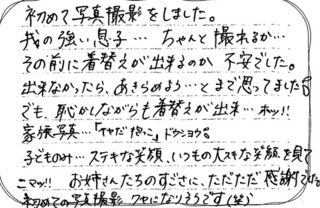 初めて写真撮影をしました。
我の強い息子… ちゃんと撮れるか…
その前に着替えが出来るのか 不安でした。
出来なかったら、あきらめよう…とまで思ってました
でも、恥かしながらも着替えが出来… ホッ!!
家族写真…「ヤだ 抱っこ」ドウショウ
子どものみ… ステキな笑顔、いつもの大スキな笑顔を見て
ニマッ!! お姉さんたちのすごさに、ただただ 感謝でした
初めての写真撮影 クセになりそうです(笑)